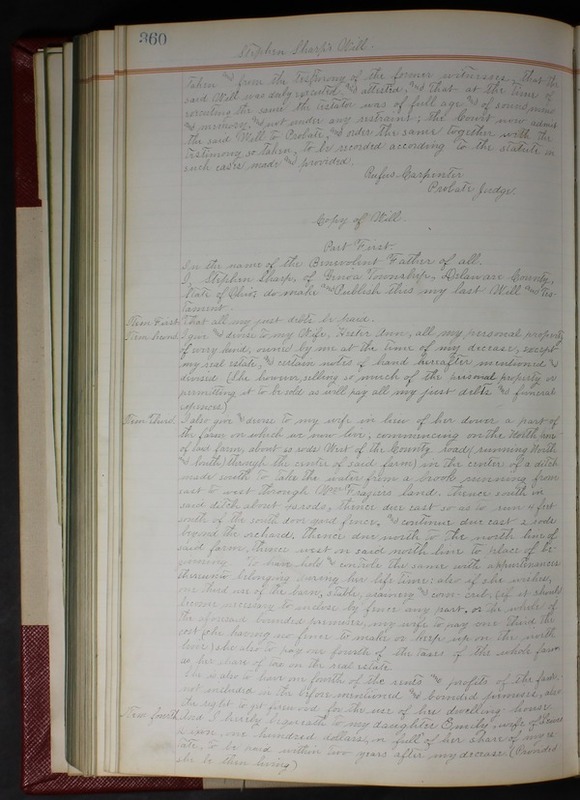 360
Stephen Sharp's Will.
taken and from the testimony of the former witnesses, that the
said Will was duly executed and attested, and that at the time of
executing the same the testator was of full age and of sound mind
and memory, and not under any restraint; the Court now admit
the said Will to Probate, and order the same together with the
testimony so taken, to be recorded according to the statute in
such cases made and provided.
Rufus Carpenter
Probate Judge.
Copy of Will.
Part First.
In the name of the Benevolent Father of all.
I, Stephen Sharp, of Genoa Township, Delaware County,
State of Ohio; do make and Publish this my last Will and Tes-
tament.
Item First. That all my just debts be paid.
Item Second. I give and devise to my Wife, Hester Ann, all my personal property
of every kind, owned by me at the time of my decease, except
my real estate, and certain notes of hand hereafter mentioned and
devised (She however, selling so much of the personal property or
permitting it to be sold as will pay all my just debts and funeral
expenses)
Item Third. I also give and devise to my wife in lieu of her dower a part of
the farm on which we now live; commencing on the North line
of said farm, about 20 rods West of the County road (running North
and South) through the center of said farm) in the center of a ditch
made south to take the water from a brook running from
east to west through Frazers land. Thence south in
said ditch about rods, thence due east so as to run 4 feet
south of the south door yard fence, and continue due east 2 rods
beyond the orchard, thence due north to the north line of
said farm, thence west on said north line to place of be-
ginning. To have hold and controle the same with appurtenances
thereunto belonging during her life time; also if she wishes,
one third use of the barn, stable, grainery and corn-crib, (if it should
become necessary to inclose by fence any part, or the whole of
the aforesaid bounded premises, my wife to pay one third the
cost she having no fence to make or keep up on the north
line) she also to pay one fourth of the taxes of the whole farm
as her share of tax on the real estate.
She is also to have one fourth of the rents and profits of the farm
not included in the before mentioned and bounded premises, also
the right to get firewood for the use of her dwelling house
Item Fourth. And I hereby bequeath to my daughter Emily, wife of
one hundred dollars, in full of her share of my es-
tate, to be paid within two years after my decease (Provided
she be then living)